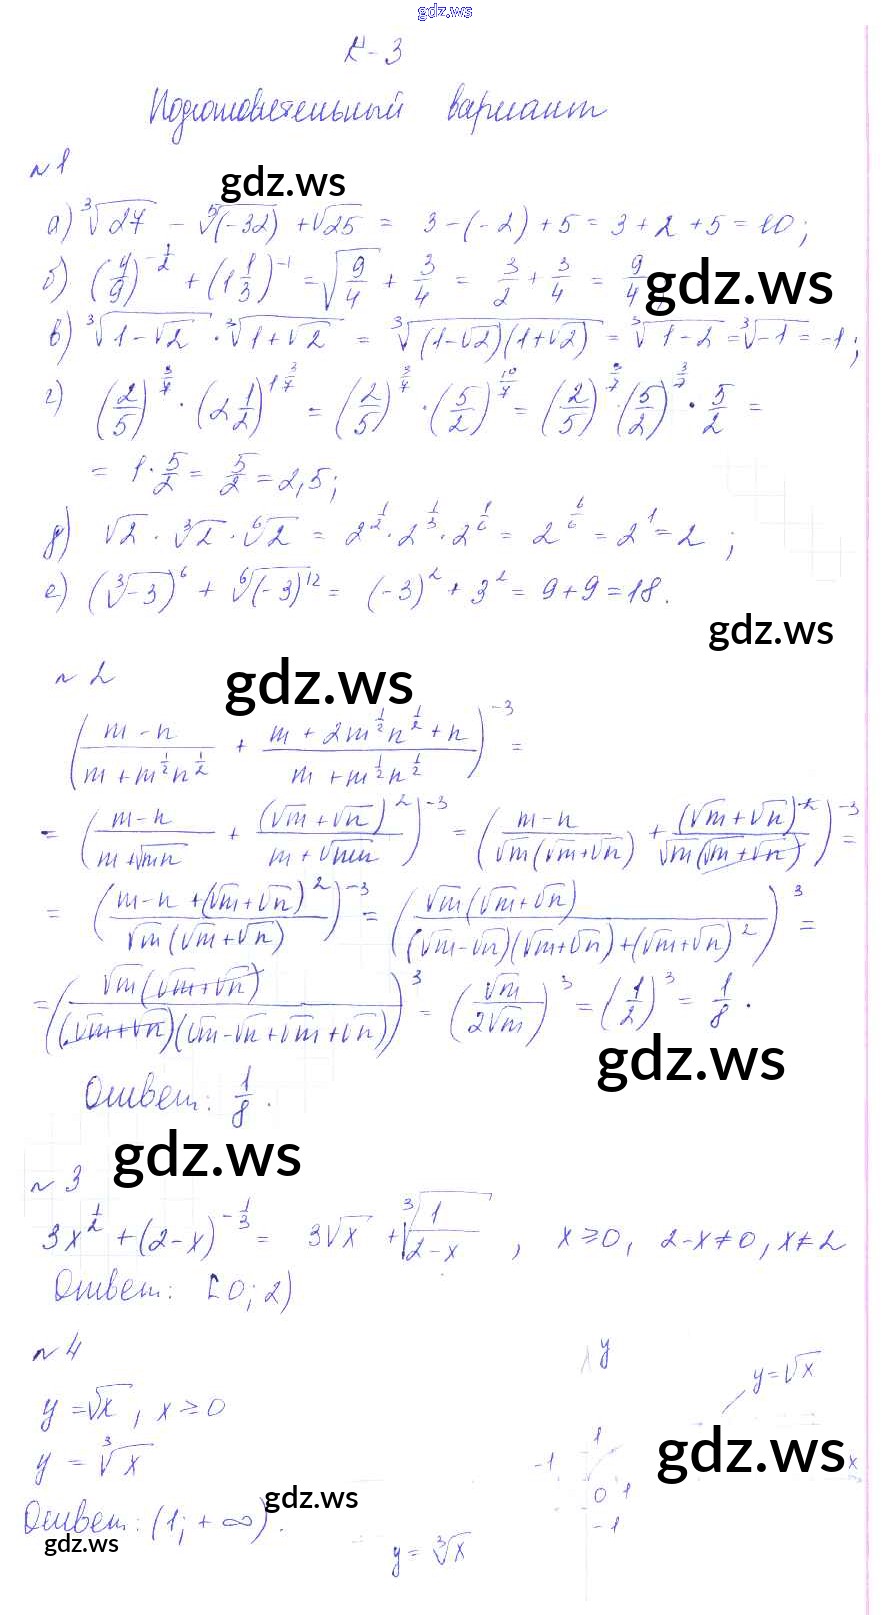 gdz.ws
К-3
Подготовительный вариант
№1
gdz.ws
а) ∛27 − ⁵√(-32) + √25 = 3-(-2)+5 = 3+2+5 = 10;
б) (4/9)^(-1/2) + (1 1/3)^(-1) = √(9/4) + 3/4 = 3/2 + 3/4 = 9/4
gdz.ws
в) ∛(1-√2) · ∛(1+√2) = ∛((1-√2)(1+√2)) = ∛(1-2) = ∛(-1) = -1;
г) (2/5)^(3/7) · (2 1/2)^(1 3/7) = (2/5)^(3/7) · (5/2)^(10/7) = (2/5)^(3/7) · (5/2)^(3/7) · 5/2 =
= 1 · 5/2 = 5/2 = 2,5;
д) √2 · ∛2 · ⁶√2 = 2^(1/2) · 2^(1/3) · 2^(1/6) = 2^(6/6) = 2^1 = 2;
е) (∛-3)^6 + ⁶√(-3)^12 = (-3)^2 + 3^2 = 9+9 = 18.
gdz.ws
№2
gdz.ws
((m-n)/(m+m^(1/2)n^(1/2)) + (m+2m^(1/2)n^(1/2)+n)/(m+m^(1/2)n^(1/2)))^(-3) =
= ((m-n)/(m+√mn) + (√m+√n)^2/(m+√mn))^(-3) = ((m-n)/(√m(√m+√n)) + (√m+√n)^2/(√m(√m+√n)))^(-3) =
= ((m-n+(√m+√n)^2)/(√m(√m+√n)))^(-3) = (√m(√m+√n)/((√m-√n)(√m+√n)+(√m+√n)^2))^3 =
= (√m(√m+√n)/((√m+√n)(√m-√n+√m+√n)))^3 = (√m/2√m)^3 = (1/2)^3 = 1/8.
gdz.ws
Ответ: 1/8.
gdz.ws
№3
3x^(1/2) + (2-x)^(-1/3) = 3√x + ∛(1/(2-x)), x≥0, 2-x≠0, x≠2
Ответ: [0; 2)
№4
y = √x, x≥0
y = ∛x
y
y=√x
gdz.ws
1
-1
x
0 1
-1
gdz.ws
Ответ: (1; +∞).
gdz.ws
y = ∛x